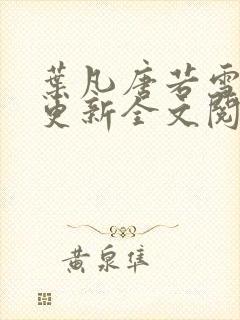 葉凡唐若雪
更新全文閱
黃泉隼